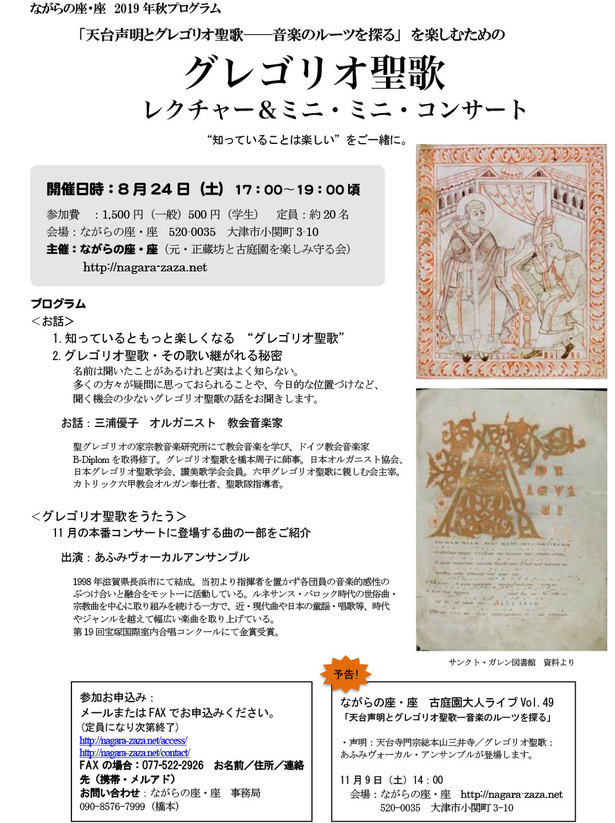 ながらの座・座　2019 年秋プログラム
「天台声明とグレゴリオ聖歌――音楽のルーツを探る」を楽しむための
グレゴリオ聖歌
レクチャー＆ミニ・ミニ・コンサート
“知っていることは楽しい”をご一緒に。
開催日時：８月２４日（土）１７：００～１９：００頃
参加費　：1,500 円（一般）500 円（学生）　定員：約 20 名
会場：ながらの座・座　520-0035　大津市小関町 3-10
主催：ながらの座・座（元・正蔵坊と古庭園を楽しみ守る会）
http://nagara-zaza.net
プログラム
＜お話＞
1. 知っているともっと楽しくなる　“グレゴリオ聖歌”
2. グレゴリオ聖歌・その歌い継がれる秘密
名前は聞いたことがあるけれど実はよく知らない。
多くの方々が疑問に思っておられることや、今日的な位置づけなど、
聞く機会の少ないグレゴリオ聖歌の話をお聞きします。
お話：三浦優子　オルガニスト　教会音楽家
聖グレゴリオの家宗教音楽研究所にて教会音楽を学び、ドイツ教会音楽家
B-Diplom を取得修了。グレゴリオ聖歌を橋本周子に師事。日本オルガニスト協会、
日本グレゴリオ聖歌学会、讃美歌学会会員。六甲グレゴリオ聖歌に親しむ会主宰。
カトリック六甲教会オルガン奉仕者、聖歌隊指導者。
＜グレゴリオ聖歌をうたう＞
11 月の本番コンサートに登場する曲の一部をご紹介
出演：あふみヴォーカルアンサンブル
1998 年滋賀県長浜市にて結成。当初より指揮者を置かず各団員の音楽的感性の
ぶつけ合いと融合をモットーに活動している。ルネサンス・バロック時代の世俗曲・
宗教曲を中心に取り組みを続ける一方で、近・現代曲や日本の童謡・唱歌等、時代
やジャンルを越えて幅広い楽曲を取り上げている。
第 19 回宝塚国際室内合唱コンクールにて金賞受賞。
サンクト・ガレン図書館　資料より
参加お申込み：
メールまたは FAX でお申込みください。
（定員になり次第終了）
http://nagara-zaza.net/access/
http://nagara-zaza.net/contact/
FAX の場合：077-522-2926　お名前／住所／連絡
先（携帯・メルアド）
お問い合わせ：ながらの座・座　事務局
090-8576-7999（橋本）
予告！
ながらの座・座　古庭園大人ライブ Vol. 49
「天台声明とグレゴリオ聖歌―音楽のルーツを探る」
・声明：天台寺門宗総本山三井寺／グレゴリオ聖歌：
あふみヴォーカル・アンサンブルが登場します。
11 月 9 日（土）14：00
会場：ながらの座・座　http://nagara-zaza.net
520-0035　大津市小関町 3-10